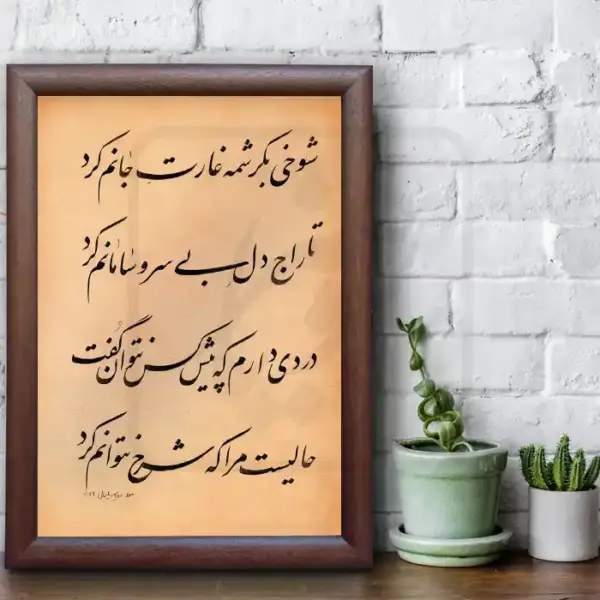 شوخی بکرشمه غارتِ جانم کرد
تاراج دلِ بی سر و سامانم کرد
دردی دارم که پیش کس نتوان گفت
حالیست مرا که شرح نتوانم کرد